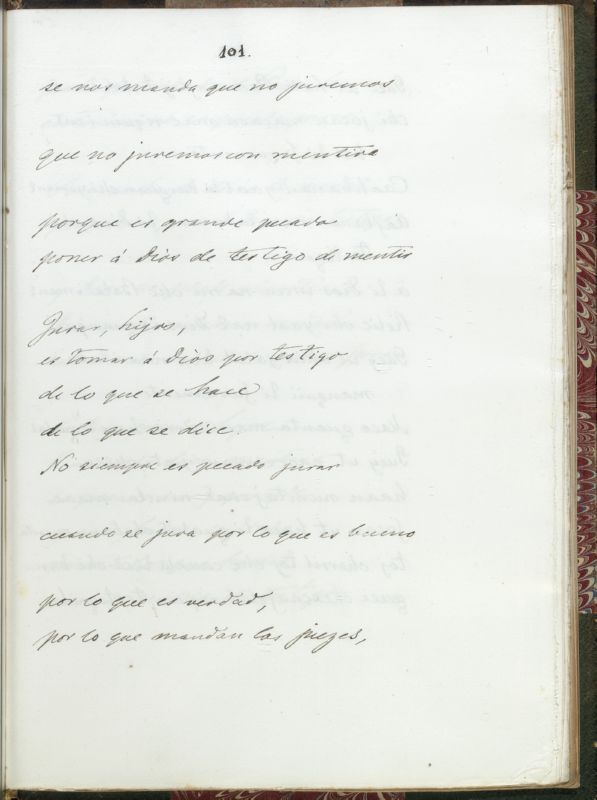 101.
se nos manda que no juremos
que no juremos con mentira
porque es grande pecado
poner á Dios de testigo de mentir
Jurar, hijos,
es tomar á Dios por testigo
de lo que se hace
de lo que se dice.
No siempre es pecado jurar
cuando se jura por lo que es bueno
por lo que es verdad,
por lo que mandan los juezes,